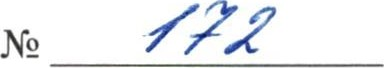 № 172